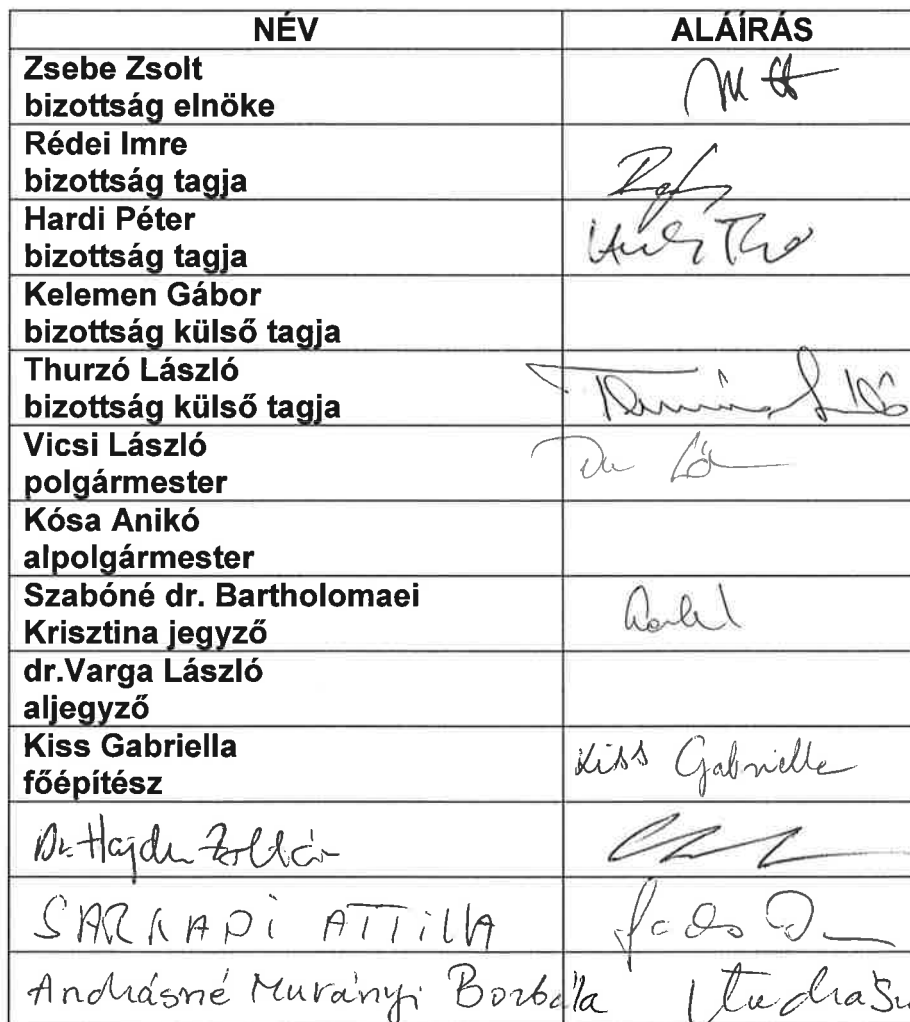 NÉV ALÁÍRÁS
Zsebe Zsolt
bizottság elnöke
Rédei Imre
bizottság tagja
Hardi Péter
bizottság tagja
Kelemen Gábor
bizottság külső tagja
Thurzó László
bizottság külső tagja
Vicsi László
polgármester
Kósa Anikó
alpolgármester
Szabóné dr. Bartholomaei
Krisztina jegyző
dr.Varga László
aljegyző
Kiss Gabriella
főépítész
Kiss Gabriella
Dr. Hajdu Zoltán
SARKADI ATTILA
Andrásné Murányi Borbála